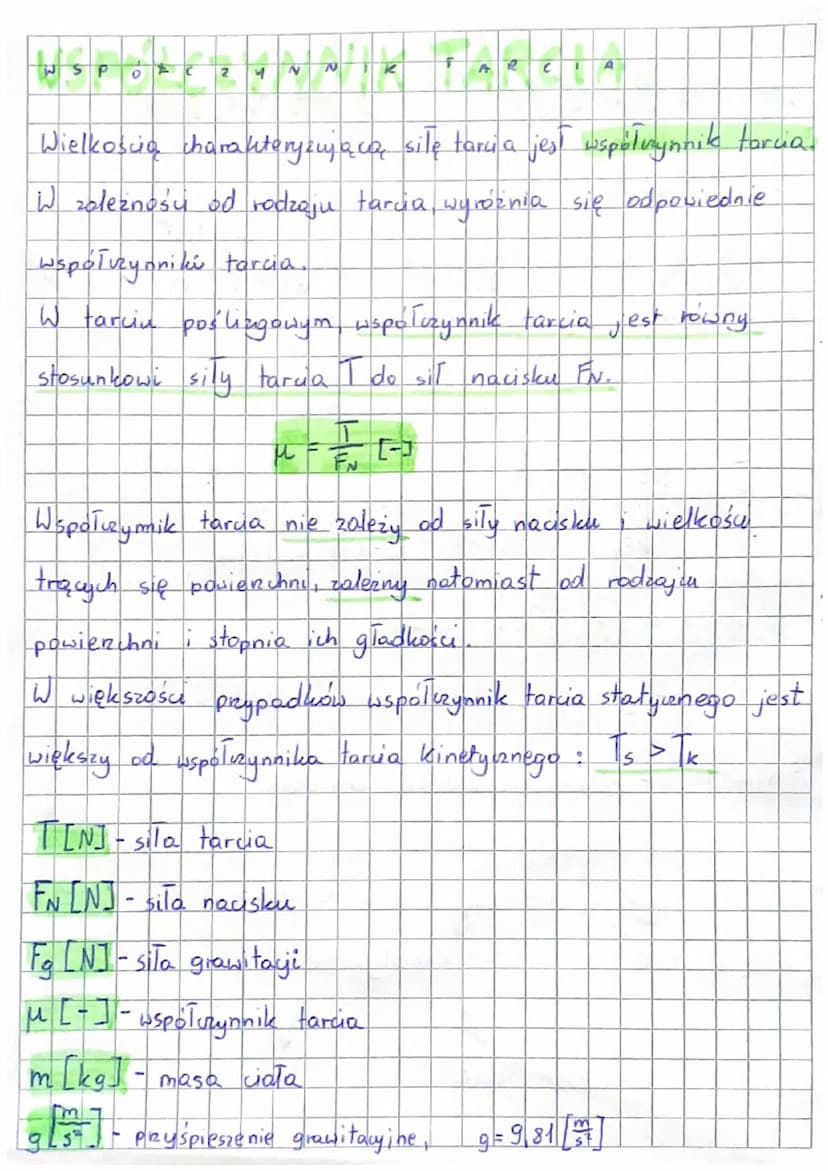 WSPÓŁCZYNNIK TARCIA
Wielkością charakteryzującą siłę tarcia jest współczynnik tarcia.
W zależności od rodzaju tarcia, wyróżnia się odpowiednie
współczynniki tarcia.
W tarciu poślizgowym, współczynnik tarcia jest równy
stosunkowi siły tarcia T do sił nacisku FN.
μ = T/FN [-]
Współczymik tarcia nie zależy od siły nacisku i wielkości
trących się powierzchni, zależny natomiast od rodzaju
powierzchni i stopnia ich gładkości.
W większości przypadków współczynnik tarcia statycznego jest
większy od współczynnika tarcia kinetycznego : Ts > Tk
T [N] - siła tarcia
FN [N] - siła nacisku
Fg [N] - siła grawitacji
μ [-] - współczynnik tarcia
m [kg] - masa ciała
g [m/s²] - przyśpieszenie grawitacyjne, g = 9,81 [m/s²]